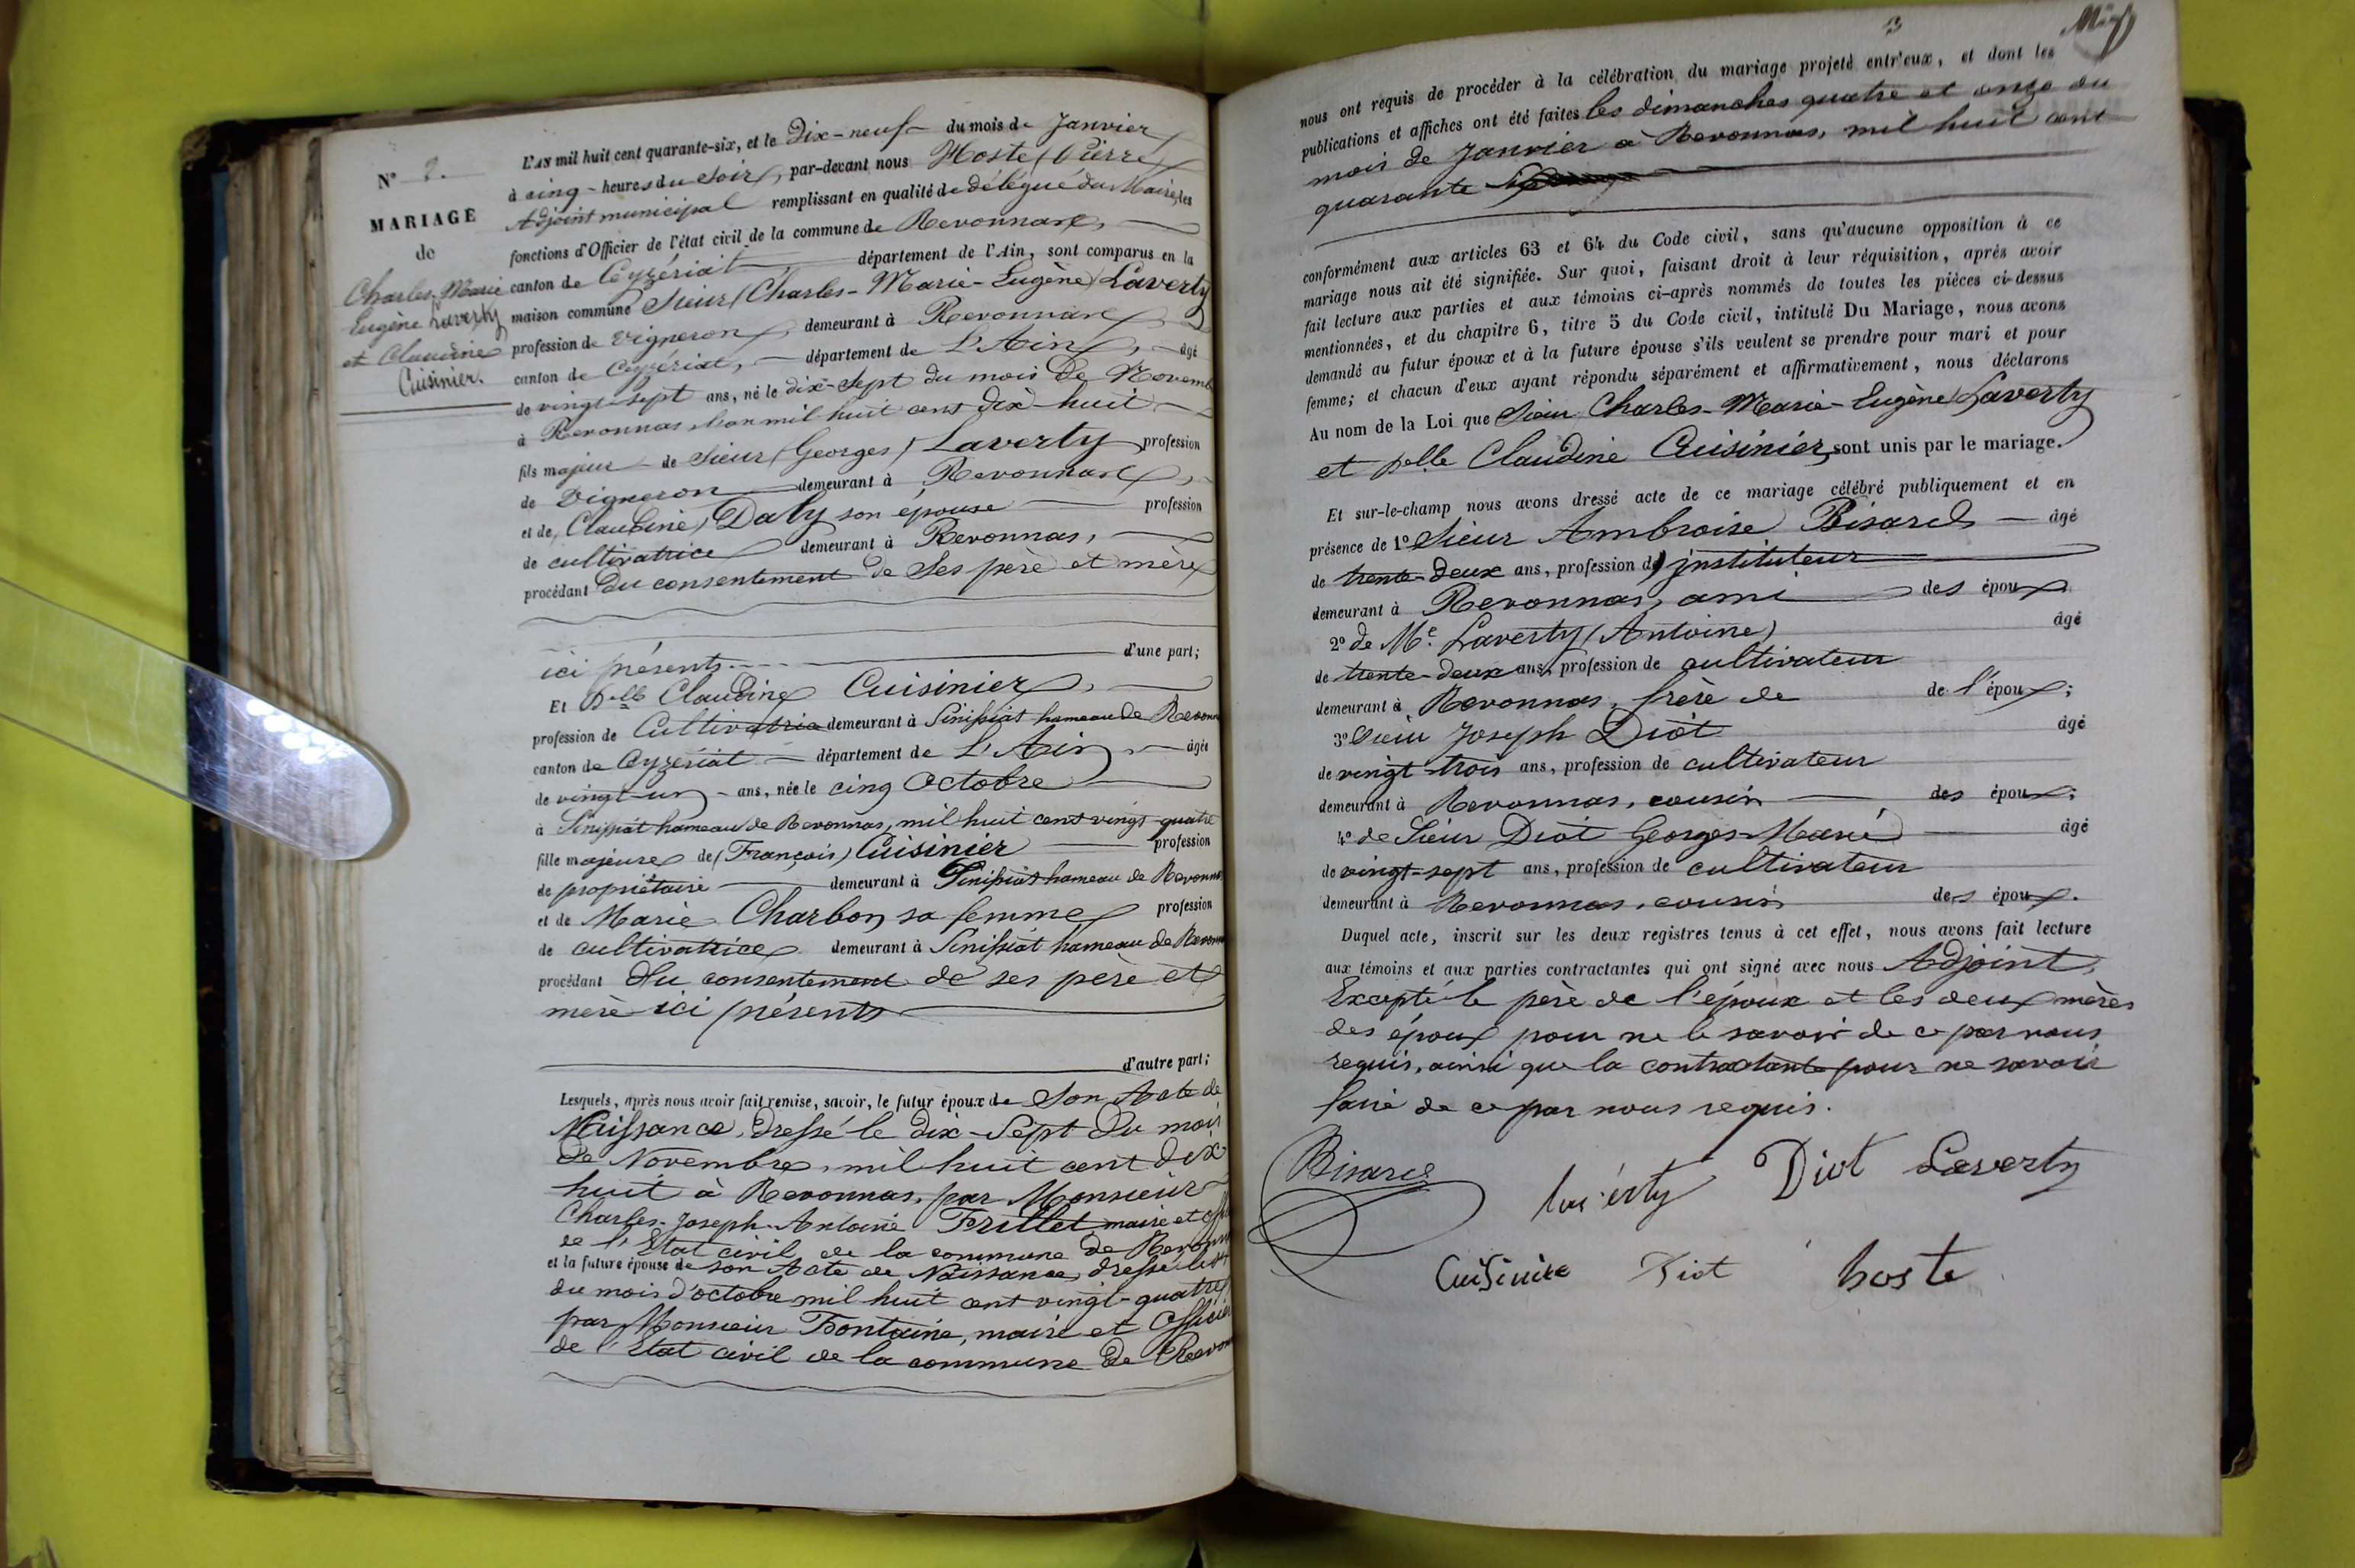 N° 2.
MARIAGE
de
Charles-Marie
Eugène Laverty
et Claudine
Cuisinier.
L'AN mil huit cent quarante-six, et le Dix-neuf du mois de Janvier
à cinq heures du Soir, par-devant nous Hoste (Pierre)
Adjoint municipal remplissant en qualité de délégué du Maire, les
fonctions d'Officier de l'état civil de la commune de Revonnas,
canton de Ceyzériat département de l'Ain, sont comparus en la
maison commune Sieur (Charles-Marie-Eugène) Laverty
profession de Vigneron, demeurant à Revonnas
canton de Ceyzériat, département de L'Ain, âgé
de vingt-sept ans, né le dix-Sept du mois de Novemb
à Revonnas, l'an mil huit cent dix-huit
fils majeur de Sieur (Georges) Laverty profession
de Vigneron demeurant à Revonnas,
et de (Claudine) Daly son épouse profession
de cultivatrice demeurant à Revonnas,
procédant Du consentement de Ses père et mère
ici présents. d'une part;
Et Delle Claudine Cuisinier,
profession de Cultivatrice demeurant à Sénissiat hameau de Revonn
canton de Ceyzériat département de L'Ain, âgée
de vingt-un ans, née le cinq Octobre
à Sénissiat hameau de Revonnas, mil huit cent vingt-quatre
fille majeure de (François) Cuisinier profession
de propriétaire demeurant à Sénissiat hameau de Revonnas
et de Marie Charbon sa femme profession
de cultivatrice demeurant à Sénissiat hameau de Revonn
procédant du consentement de ses père et
mère ici présents
d'autre part;
Lesquels, après nous avoir fait remise, savoir, le futur époux de Son Acte de
Naissance, dressé le dix-Sept Du mois
de Novembre, mil huit cent dix
huit à Revonnas, par Monsieur
Charles-Joseph-Antoine Frillet maire et
de l'Etat civil de la commune de Revonn
et la future épouse de son Acte de Naissance, dressé le
du mois d'octobre mil huit cent vingt-quatre
par Monsieur Fontaine, maire et Officier
de l'Etat civil de la commune de Revonn
3
nous ont requis de procéder à la célébration du mariage projeté entr'eux, et dont les
publications et affiches ont été faites les dimanches quatre et onze du
mois de Janvier à Revonnas, mil huit cent
quarante Six
conformément aux articles 63 et 64 du Code civil, sans qu'aucune opposition à ce
mariage nous ait été signifiée. Sur quoi, faisant droit à leur réquisition, après avoir
fait lecture aux parties et aux témoins ci-après nommés de toutes les pièces ci-dessus
mentionnées, et du chapitre 6, titre 5 du Code civil, intitulé Du Mariage, nous avons
demandé au futur époux et à la future épouse s'ils veulent se prendre pour mari et pour
femme; et chacun d'eux ayant répondu séparément et affirmativement, nous déclarons
Au nom de la Loi que Sieur Charles-Marie-Eugène Laverty
et Delle Claudine Cuisinier, sont unis par le mariage.
Et sur-le-champ nous avons dressé acte de ce mariage célébré publiquement et en
présence de 1° Sieur Ambroise Bisard âgé
de trente-deux ans, profession d' instituteur
demeurant à Revonnas, ami des époux
2° de Me. Laverty (Antoine) âgé
de trente-deux ans, profession de cultivateur
demeurant à Revonnas, frère de de l'époux;
3° Sieur Joseph Diot âgé
de vingt-trois ans, profession de cultivateur
demeurant à Revonnas, cousin des époux;
4° de Sieur Diot Georges-Marie âgé
de vingt-sept ans, profession de cultivateur
demeurant à Revonnas, cousin des époux.
Duquel acte, inscrit sur les deux registres tenus à cet effet, nous avons fait lecture
aux témoins et aux parties contractantes qui ont signé avec nous Adjoint,
Excepté le père de l'époux et les deux mères
des époux pour ne le savoir de ce par nous
requis, ainsi que la contractante pour ne savoir
faire de ce par nous requis.
Bisard laverty Diot Laverty
Cuisinier Diot hoste